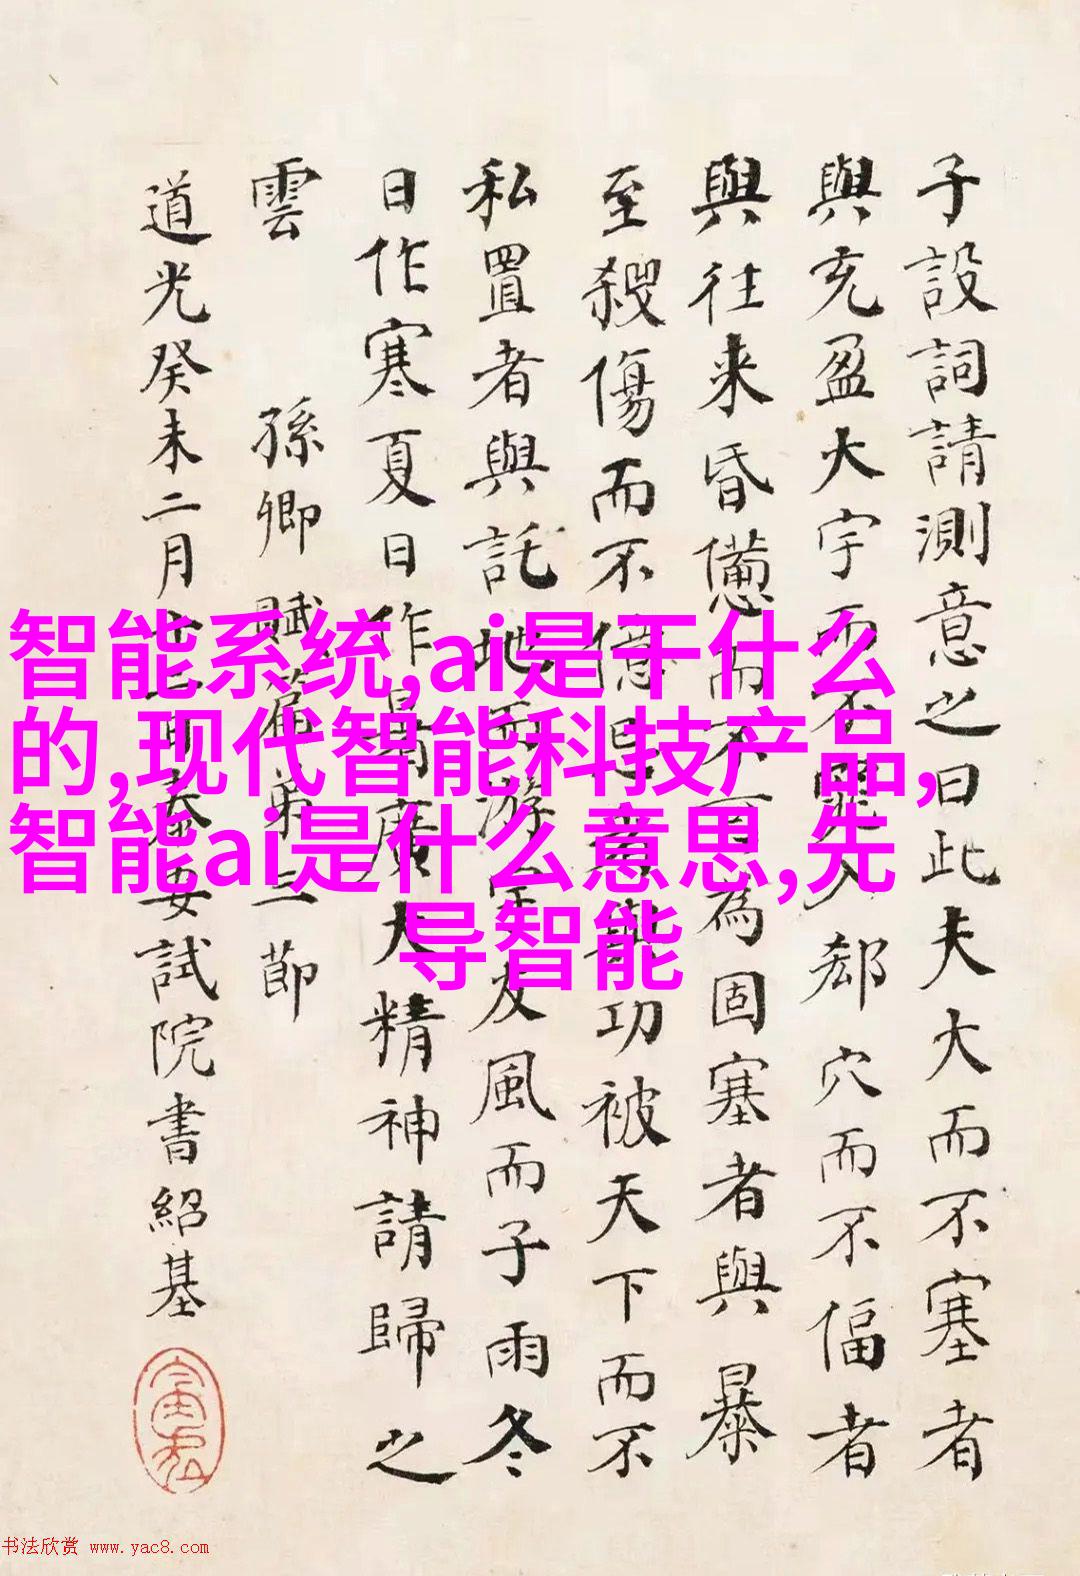 子設詞請測意之曰此夫大而不塞者
與充盈大宇而不窕入郄穴而不偪者
與往来昏憊而不可為固塞者與暴
至殺傷而不億忌者與功被天下而不
私置者與託地而游宇友風而子雨冬
日作寒夏日作暑廣大精神請歸之
雲 孫卿賦篇第三節
道光癸未二月 試院書紹基
智能系统,ai是干什么
的,现代智能科技产品,
智能ai是什么意思,先
导智能
书法欣赏 www.yac8.com